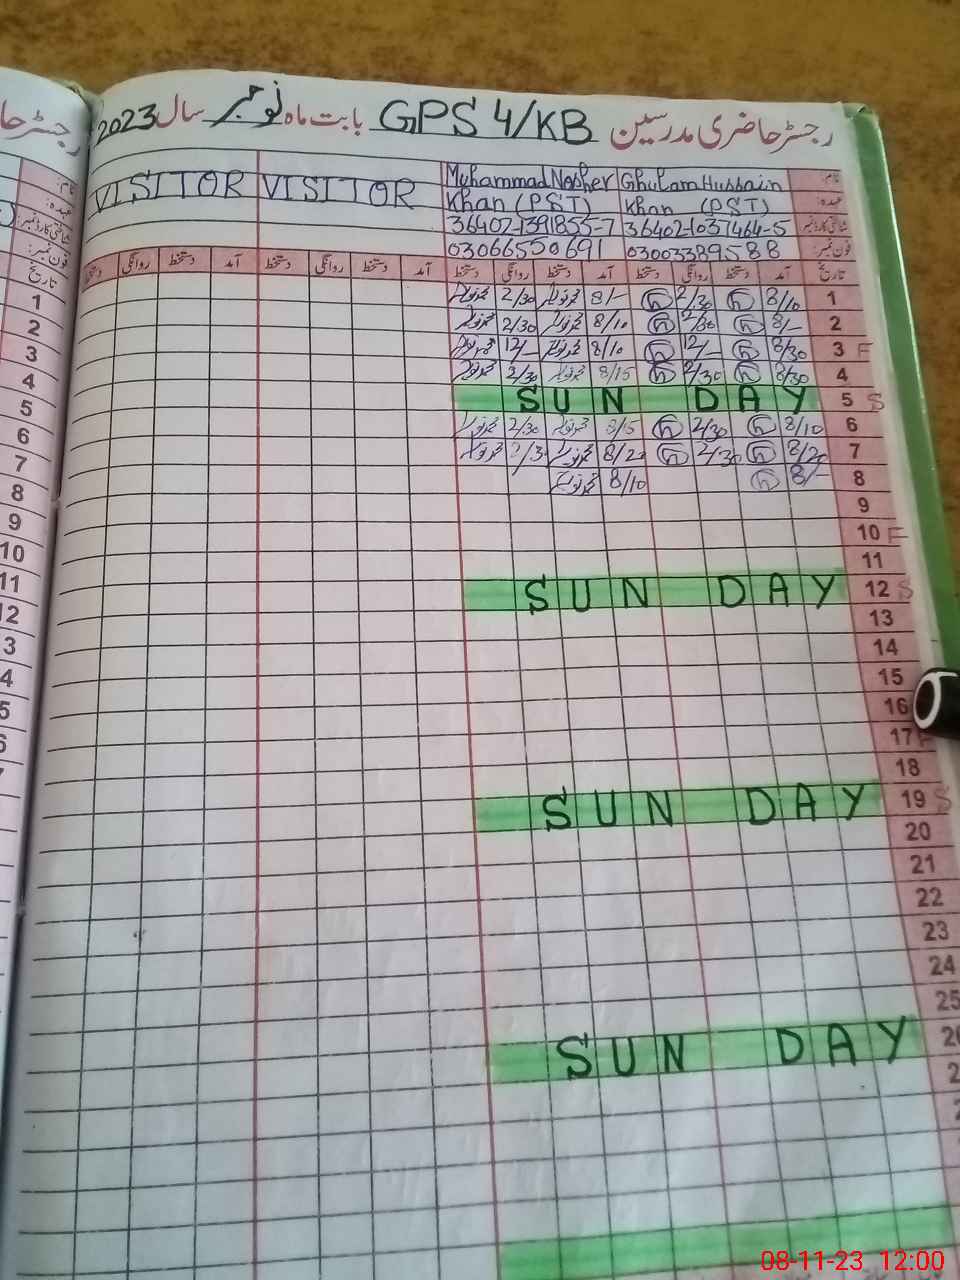 رجسٹر حاضری مدرسین GPS 4/KB بابت ماہ نومبر سال 2023
نام: Ghulam Hussain Muhammad Nosher VISITOR VISITOR
عہدہ: Khan (PST) Khan (PST)
شناختی کارڈ نمبر: 36402-1031464-5 36402-1391855-7
فون نمبر: 03003389588 03066520691
تاریخ آمد دستخط روانگی دستخط آمد دستخط روانگی دستخط آمد دستخط روانگی دستخط آمد دستخط روانگی دستخط
1 8/10 2/30 8/- 2/30
2 8/- 2/30 8/10 2/30
3 F 8/30 12/- 8/10 12/-
4 8/30 2/30 8/15 2/30
5 S SUN DAY
6 8/10 2/30 8/15 2/30
7 8/20 2/30 8/20 2/3
8 8/- 8/10
9
10 F
11
12 S SUN DAY
13
14
15
16
17 F
18
19 S SUN DAY
20
21
22
23
24
25
SUN DAY
رجسٹر حا
نام:
عہدہ:
شناختی کارڈ نمبر:
فون نمبر:
تاریخ
1
2
3
4
5
6
7
8
9
10
11
12
3
4
5
08-11-23 12:00